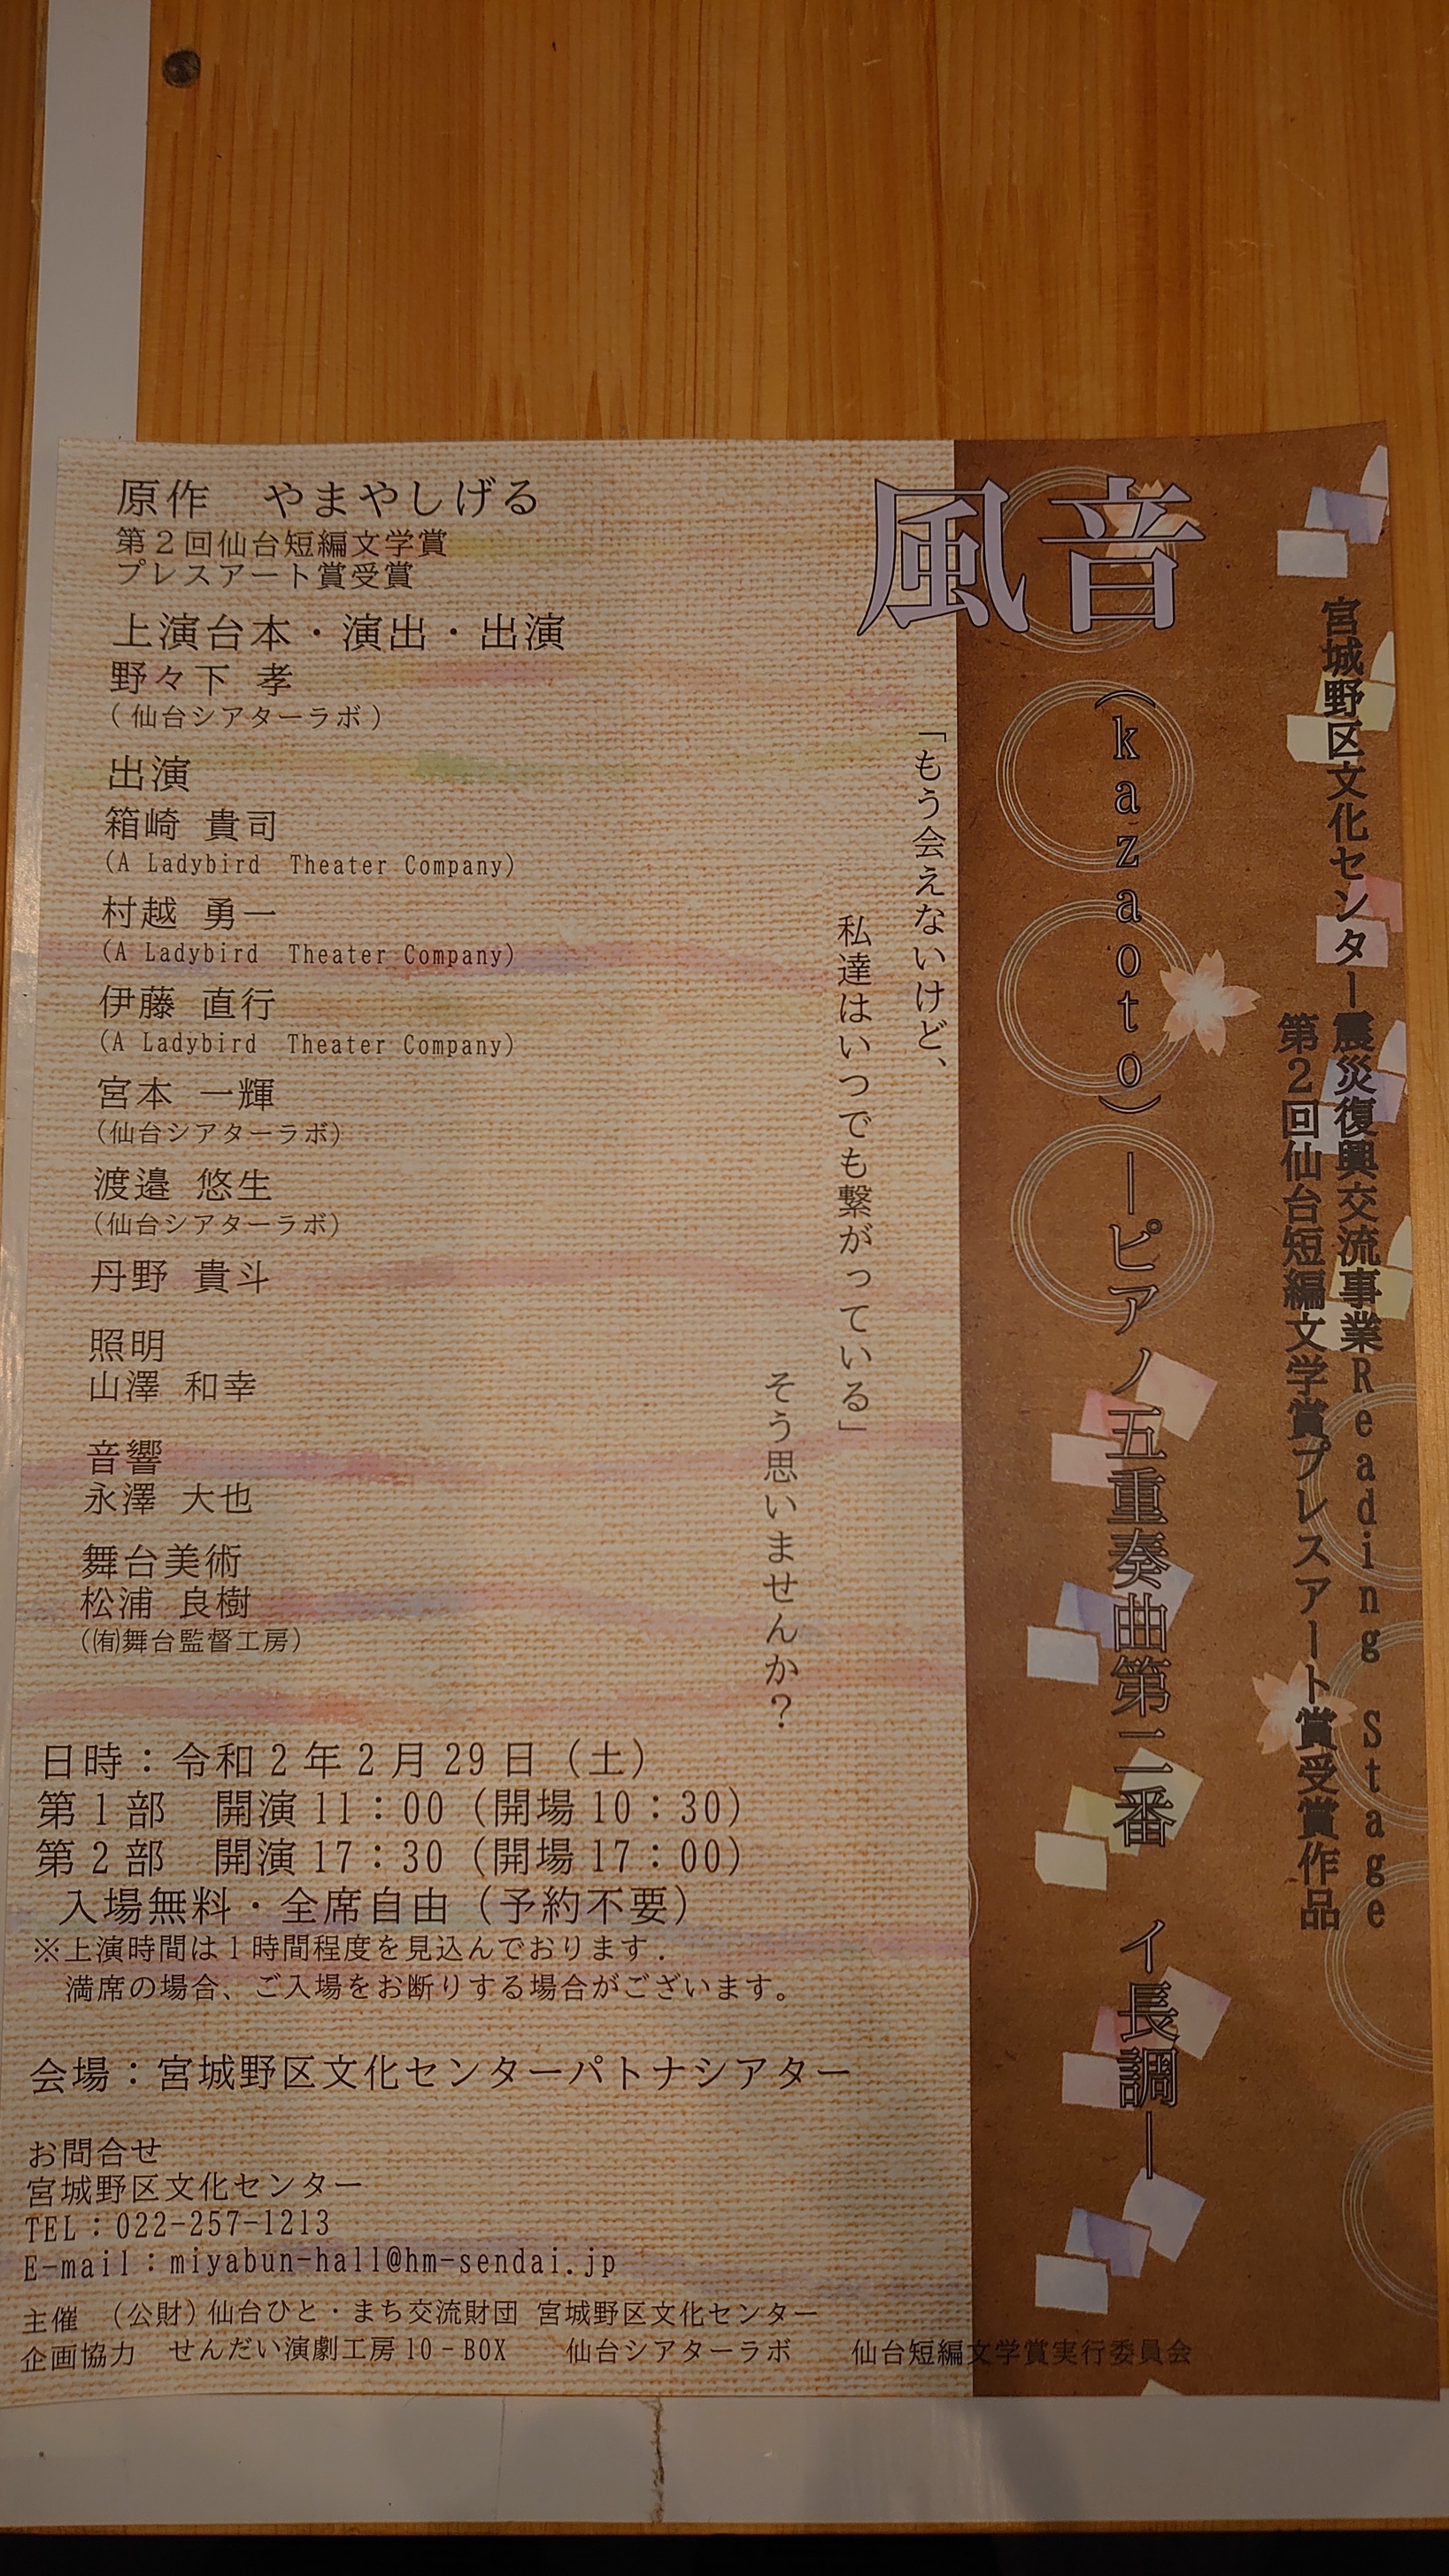 宮城野区文化センター震災復興交流事業Reading Stage
第2回仙台短編文学賞プレスアート賞受賞作品
風音
(kazaoto)―ピアノ五重奏曲第二番 イ長調―
「もう会えないけど、
私達はいつでも繋がっている」
そう思いませんか?
原作 やまやしげる
第2回仙台短編文学賞
プレスアート賞受賞
上演台本・演出・出演
野々下 孝
(仙台シアターラボ)
出演
箱崎 貴司
(A Ladybird Theater Company)
村越 勇一
(A Ladybird Theater Company)
伊藤 直行
(A Ladybird Theater Company)
宮本 一輝
(仙台シアターラボ)
渡邉 悠生
(仙台シアターラボ)
丹野 貴斗
照明
山澤 和幸
音響
永澤 大也
舞台美術
松浦 良樹
(㈲舞台監督工房)
日時:令和2年2月29日(土)
第1部 開演11:00(開場10:30)
第2部 開演17:30(開場17:00)
入場無料・全席自由(予約不要)
※上演時間は1時間程度を見込んでおります.
満席の場合、ご入場をお断りする場合がございます。
会場:宮城野区文化センターパトナシアター
お問合せ
宮城野区文化センター
TEL:022-257-1213
E-mail:miyabun-hall@hm-sendai.jp
主催 (公財)仙台ひと・まち交流財団 宮城野区文化センター
企画協力 せんだい演劇工房10-BOX 仙台シアターラボ 仙台短編文学賞実行委員会